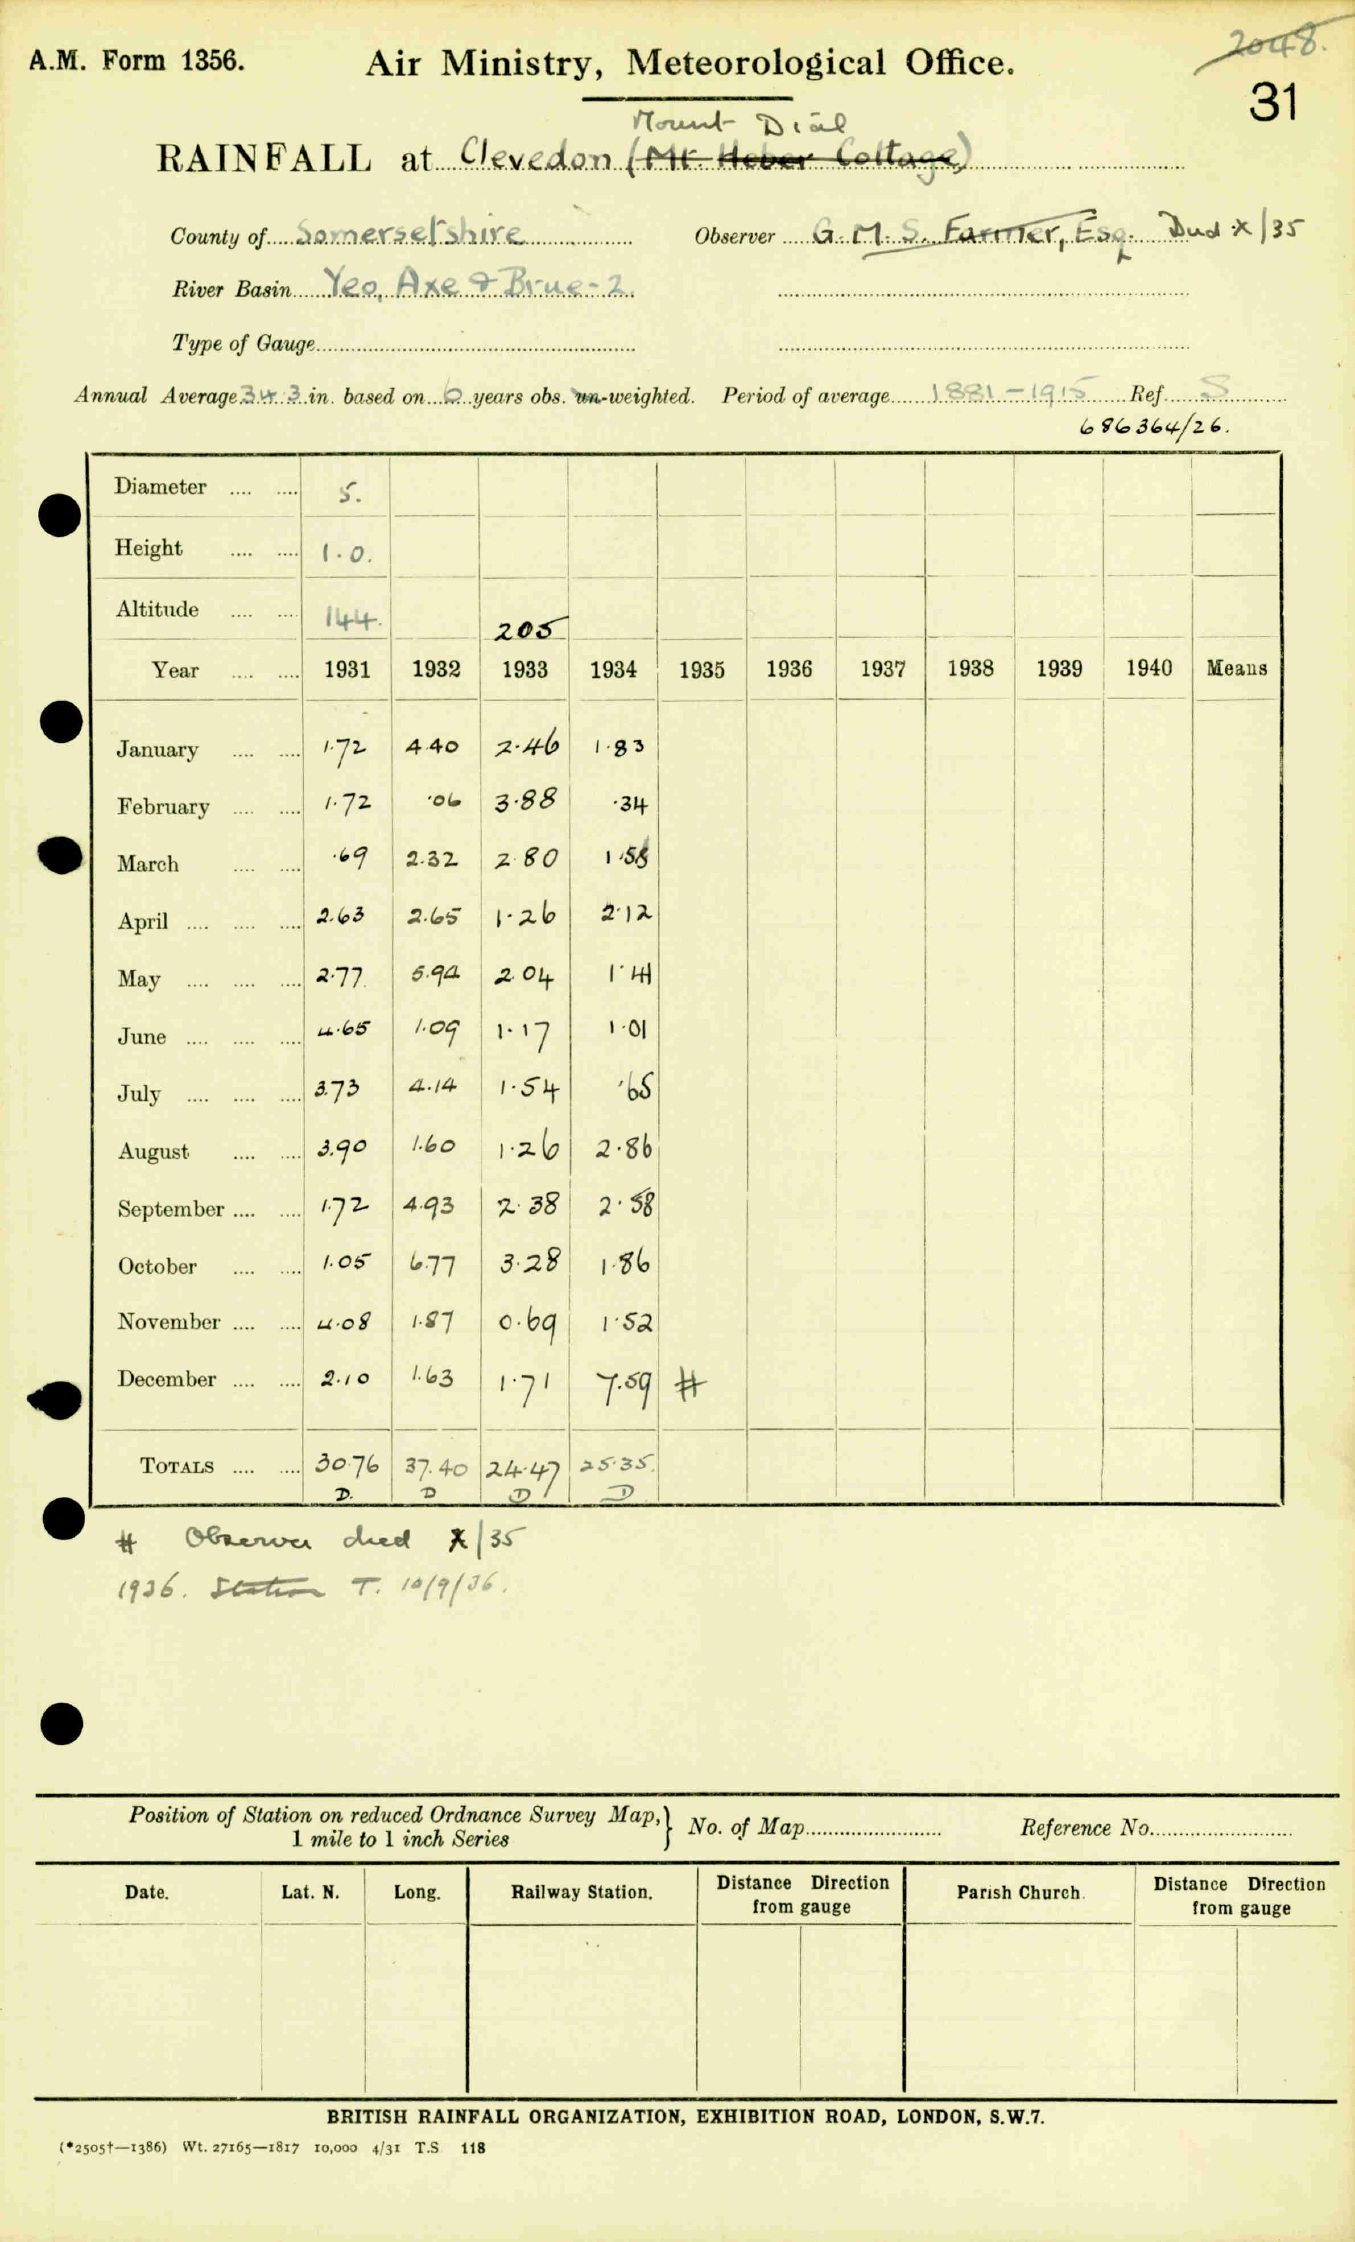 2048.
A.M. Form 1356.
Air Ministry, Meteorological Office.
31
Mount Dial
RAINFALL at Clevedon (Mt. Heber Cottage)
County of Somersetshire Observer G. M. S. Farmer, Esq. Died X/35
River Basin Yeo, Axe & Brue-2.
Type of Gauge
Annual Average 34.3 in. based on 6 years obs. un-weighted. Period of average 1881-1915 Ref. S
686364/26.
Diameter 5.
Height 1.0.
Altitude 144. 205
Year 1931 1932 1933 1934 1935 1936 1937 1938 1939 1940 Means
January 1.72 4.40 2.46 1.83
February 1.72 .06 3.88 .34
March .69 2.32 2.80 1.58
April 2.63 2.65 1.26 2.12
May 2.77 5.94 2.04 1.41
June 4.65 1.09 1.17 1.01
July 3.73 4.14 1.54 .65
August 3.90 1.60 1.26 2.86
September 1.72 4.93 2.38 2.58
October 1.05 6.77 3.28 1.86
November 4.08 1.87 0.69 1.52
December 2.10 1.63 1.71 7.59 #
TOTALS 30.76 37.40 24.47 25.35.
D. D D D
# Observer died X/35
1936. Station T. 10/9/36.
Position of Station on reduced Ordnance Survey Map,
1 mile to 1 inch Series } No. of Map Reference No.
Date. Lat. N. Long. Railway Station. Distance Direction from gauge Parish Church. Distance Direction from gauge
BRITISH RAINFALL ORGANIZATION, EXHIBITION ROAD, LONDON, S.W.7.
(*2505†—1386) Wt. 27165—1817 10,000 4/31 T.S 118